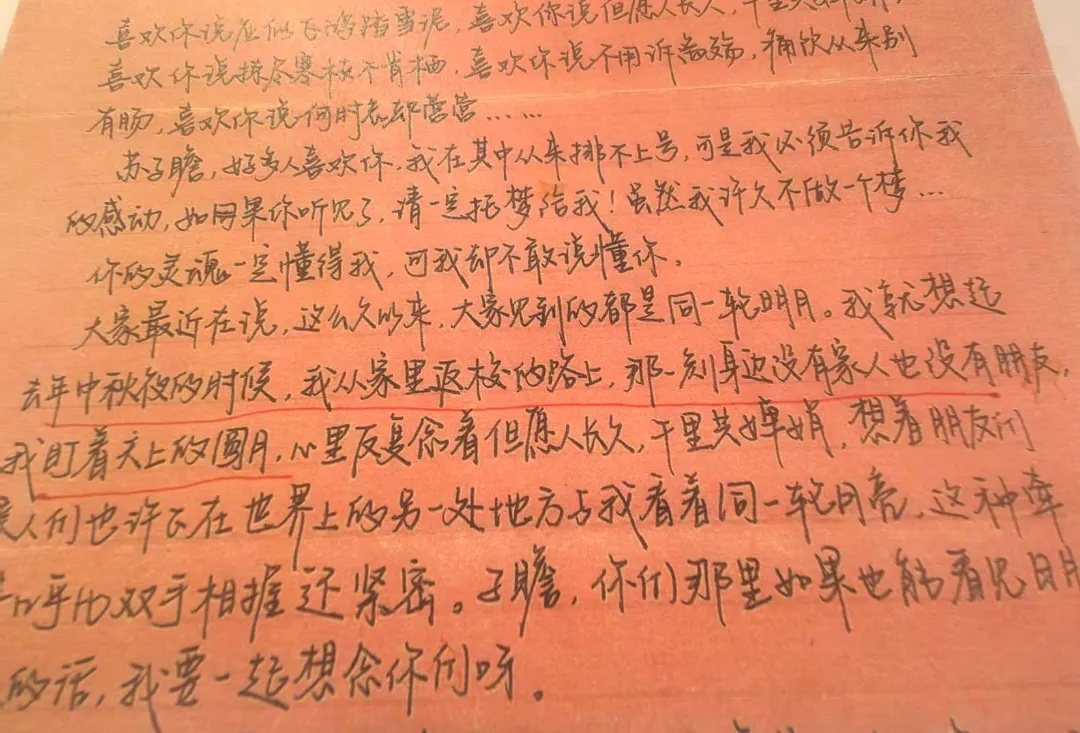 喜欢你说应似飞鸿踏雪泥，喜欢你说但愿人长久，千里共婵娟，
喜欢你说拣尽寒枝不肯栖，喜欢你说不用诉离殇，痛饮从来别
有肠，喜欢你说何时忘却营营……
苏子瞻，好多人喜欢你，我在其中从来排不上号，可是我必须告诉你我
的感动，如果你听见了，请一定托梦给我！虽然我许久不做一个梦…
你的灵魂一定懂得我，可我却不敢说懂你。
大家最近在说，这么久以来，大家见到的都是同一轮明月。我就想起
去年中秋夜的时候，我从家里返校的路上，那一刻身边没有家人也没有朋友，
我盯着天上的圆月，心里反复念着但愿人长久，千里共婵娟，想着朋友们
人们也许正在世界上的另一处地方与我看着同一轮月亮，这种牵
乎比双手相握还紧密。子瞻，你们那里如果也能看见明月
的话，我要一起想念你们呀。